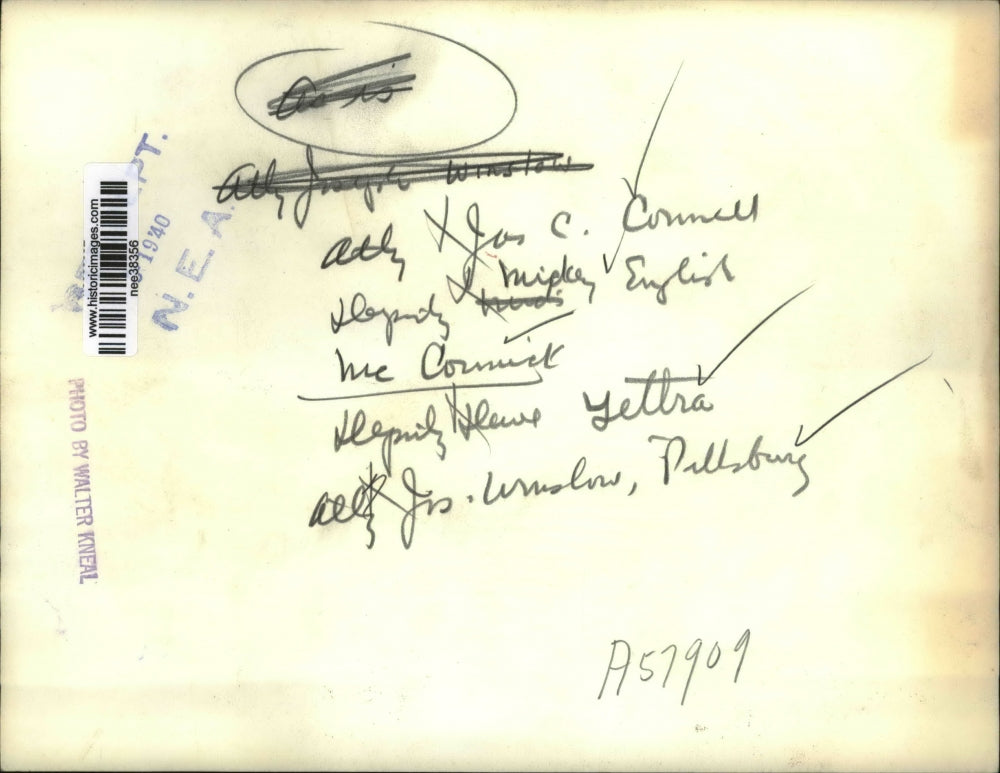 As is
Atty Joseph Winslow
Atty Jos C. Connell
Deputy Mickey English
McCormick
Deputy Steve Tettra
Atty Jos. Winslow, Pittsburg
A57909
PT.
1940
N. E. A.
www.historicimages.com
nee38356
PHOTO BY WALTER KNEAL